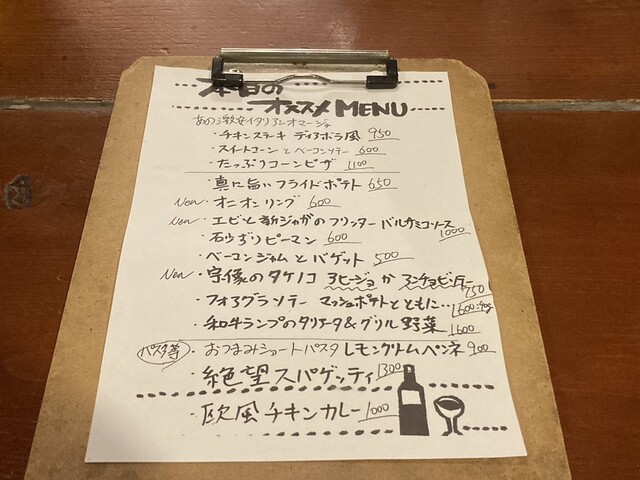 本日の
オススメ MENU
あの激安イタリアンオマージュ
・チキンステーキ ディアボラ風 950
・スイートコーンとベーコンソテー 600
・たっぷりコーンピザ 1100
・真に旨いフライドポテト 650
New ・オニオンリング 600
New ・エビと新ジャガのフリッター バルサミコソース 1000
・砂ずりピーマン 600
・ベーコンジャムとバゲット 500
New ・宗像のタケノコ アヒージョ か アンチョビバター 750
・フォアグラソテー マッシュポテトとともに… 1600
・和牛ランプのタリアータ&グリル野菜 1600
パスタ等 ・おつまみショートパスタ レモンクリームペンネ 900
・絶望スパゲッティ 1300
・欧風チキンカレー 1000